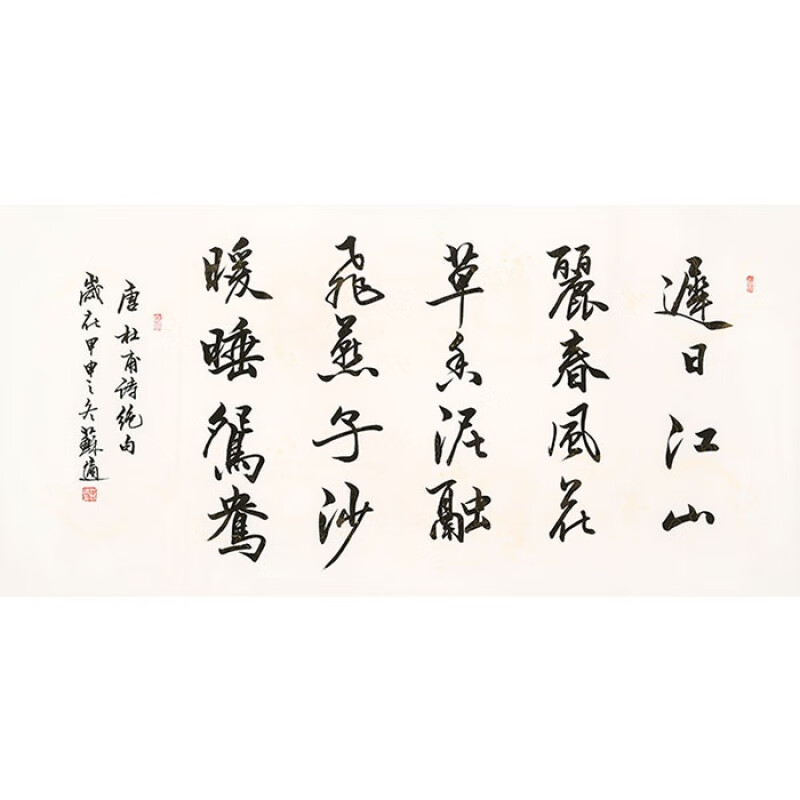 遲日江山
麗春風花
草香泥融
飛燕子沙
暖睡鴛鴦
唐杜甫詩絕句
歲在甲申之冬蘇適